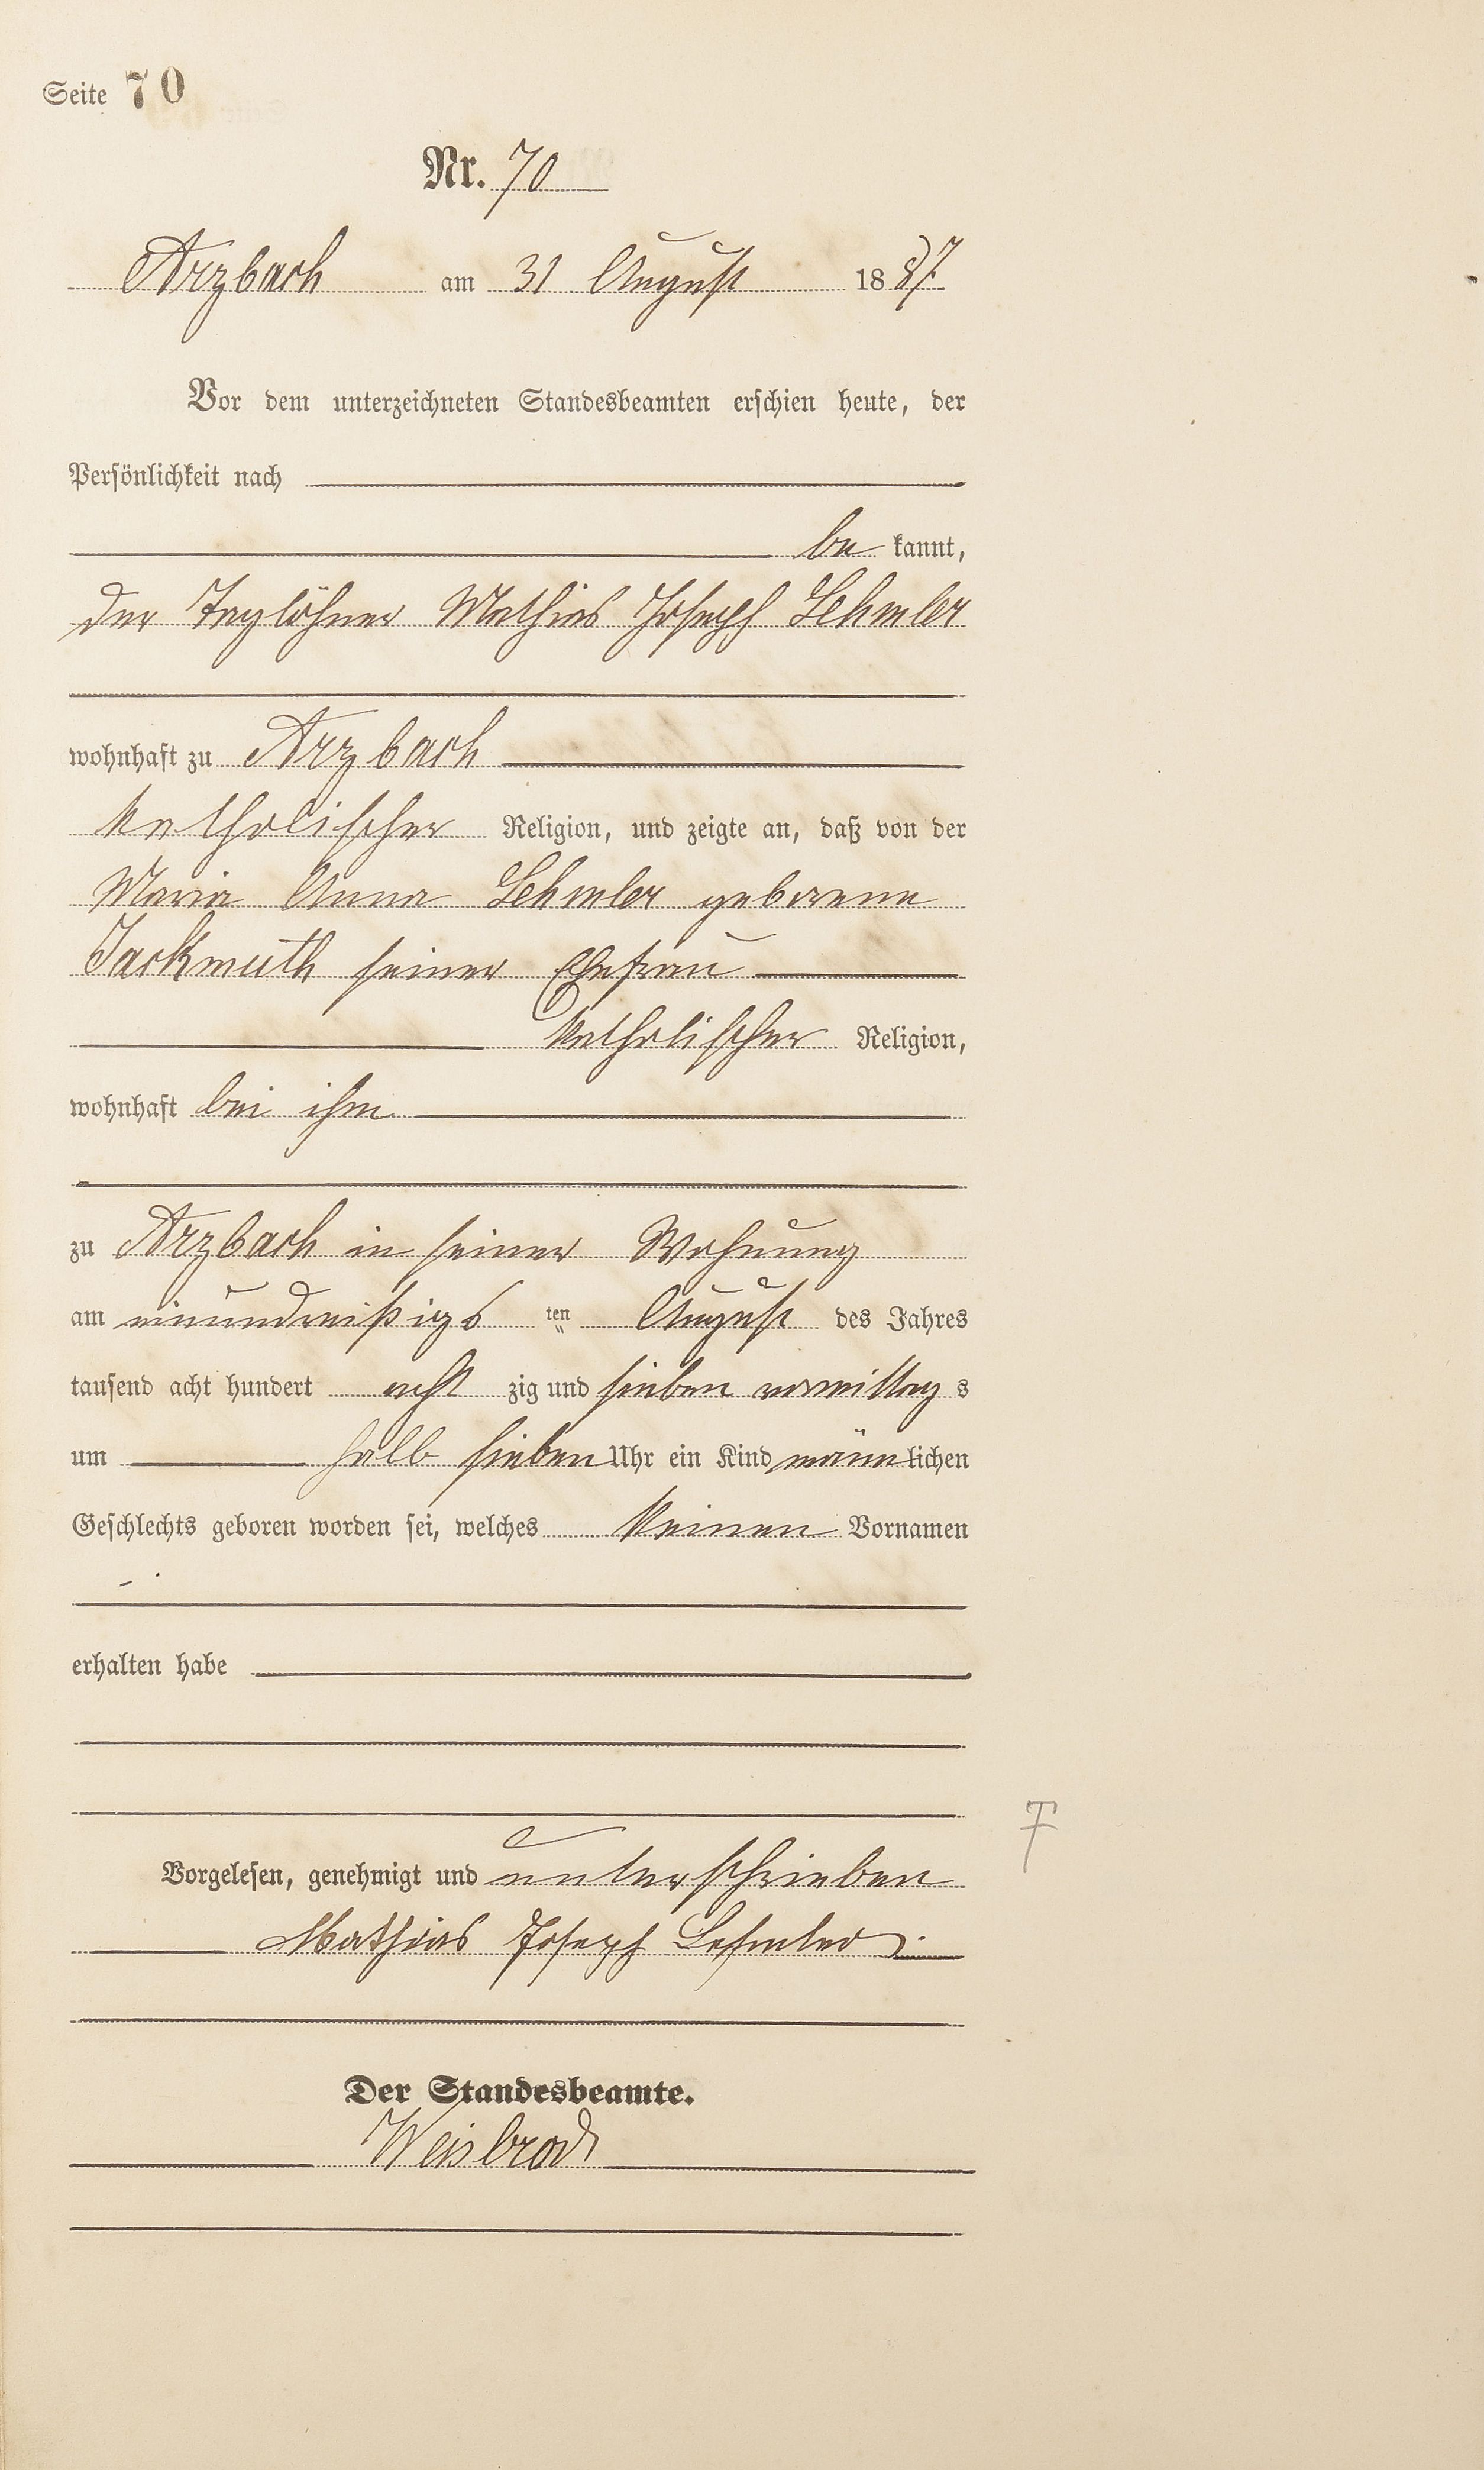 Seite 70
Nr. 70
Arzbach am 31 August 1887
Vor dem unterzeichneten Standesbeamten erschien heute, der
Persönlichkeit nach
be kannt,
der Taglöhner Mathias Joseph Lehmler
wohnhaft zu Arzbach
katholischer Religion, und zeigte an, daß von der
Maria Anna Lehmler geborene
Jackmuth seiner Ehefrau
katholischer Religion,
wohnhaft bei ihm
zu Arzbach in seiner Wohnung
am einunddreißigs ten August des Jahres
tausend acht hundert acht zig und sieben vormittag s
um halb sieben Uhr ein Kind männlichen
Geschlechts geboren worden sei, welches keinen Vornamen
erhalten habe
Vorgelesen, genehmigt und unterschrieben
Mathias Joseph Lehmler
Der Standesbeamte.
Weisbrod